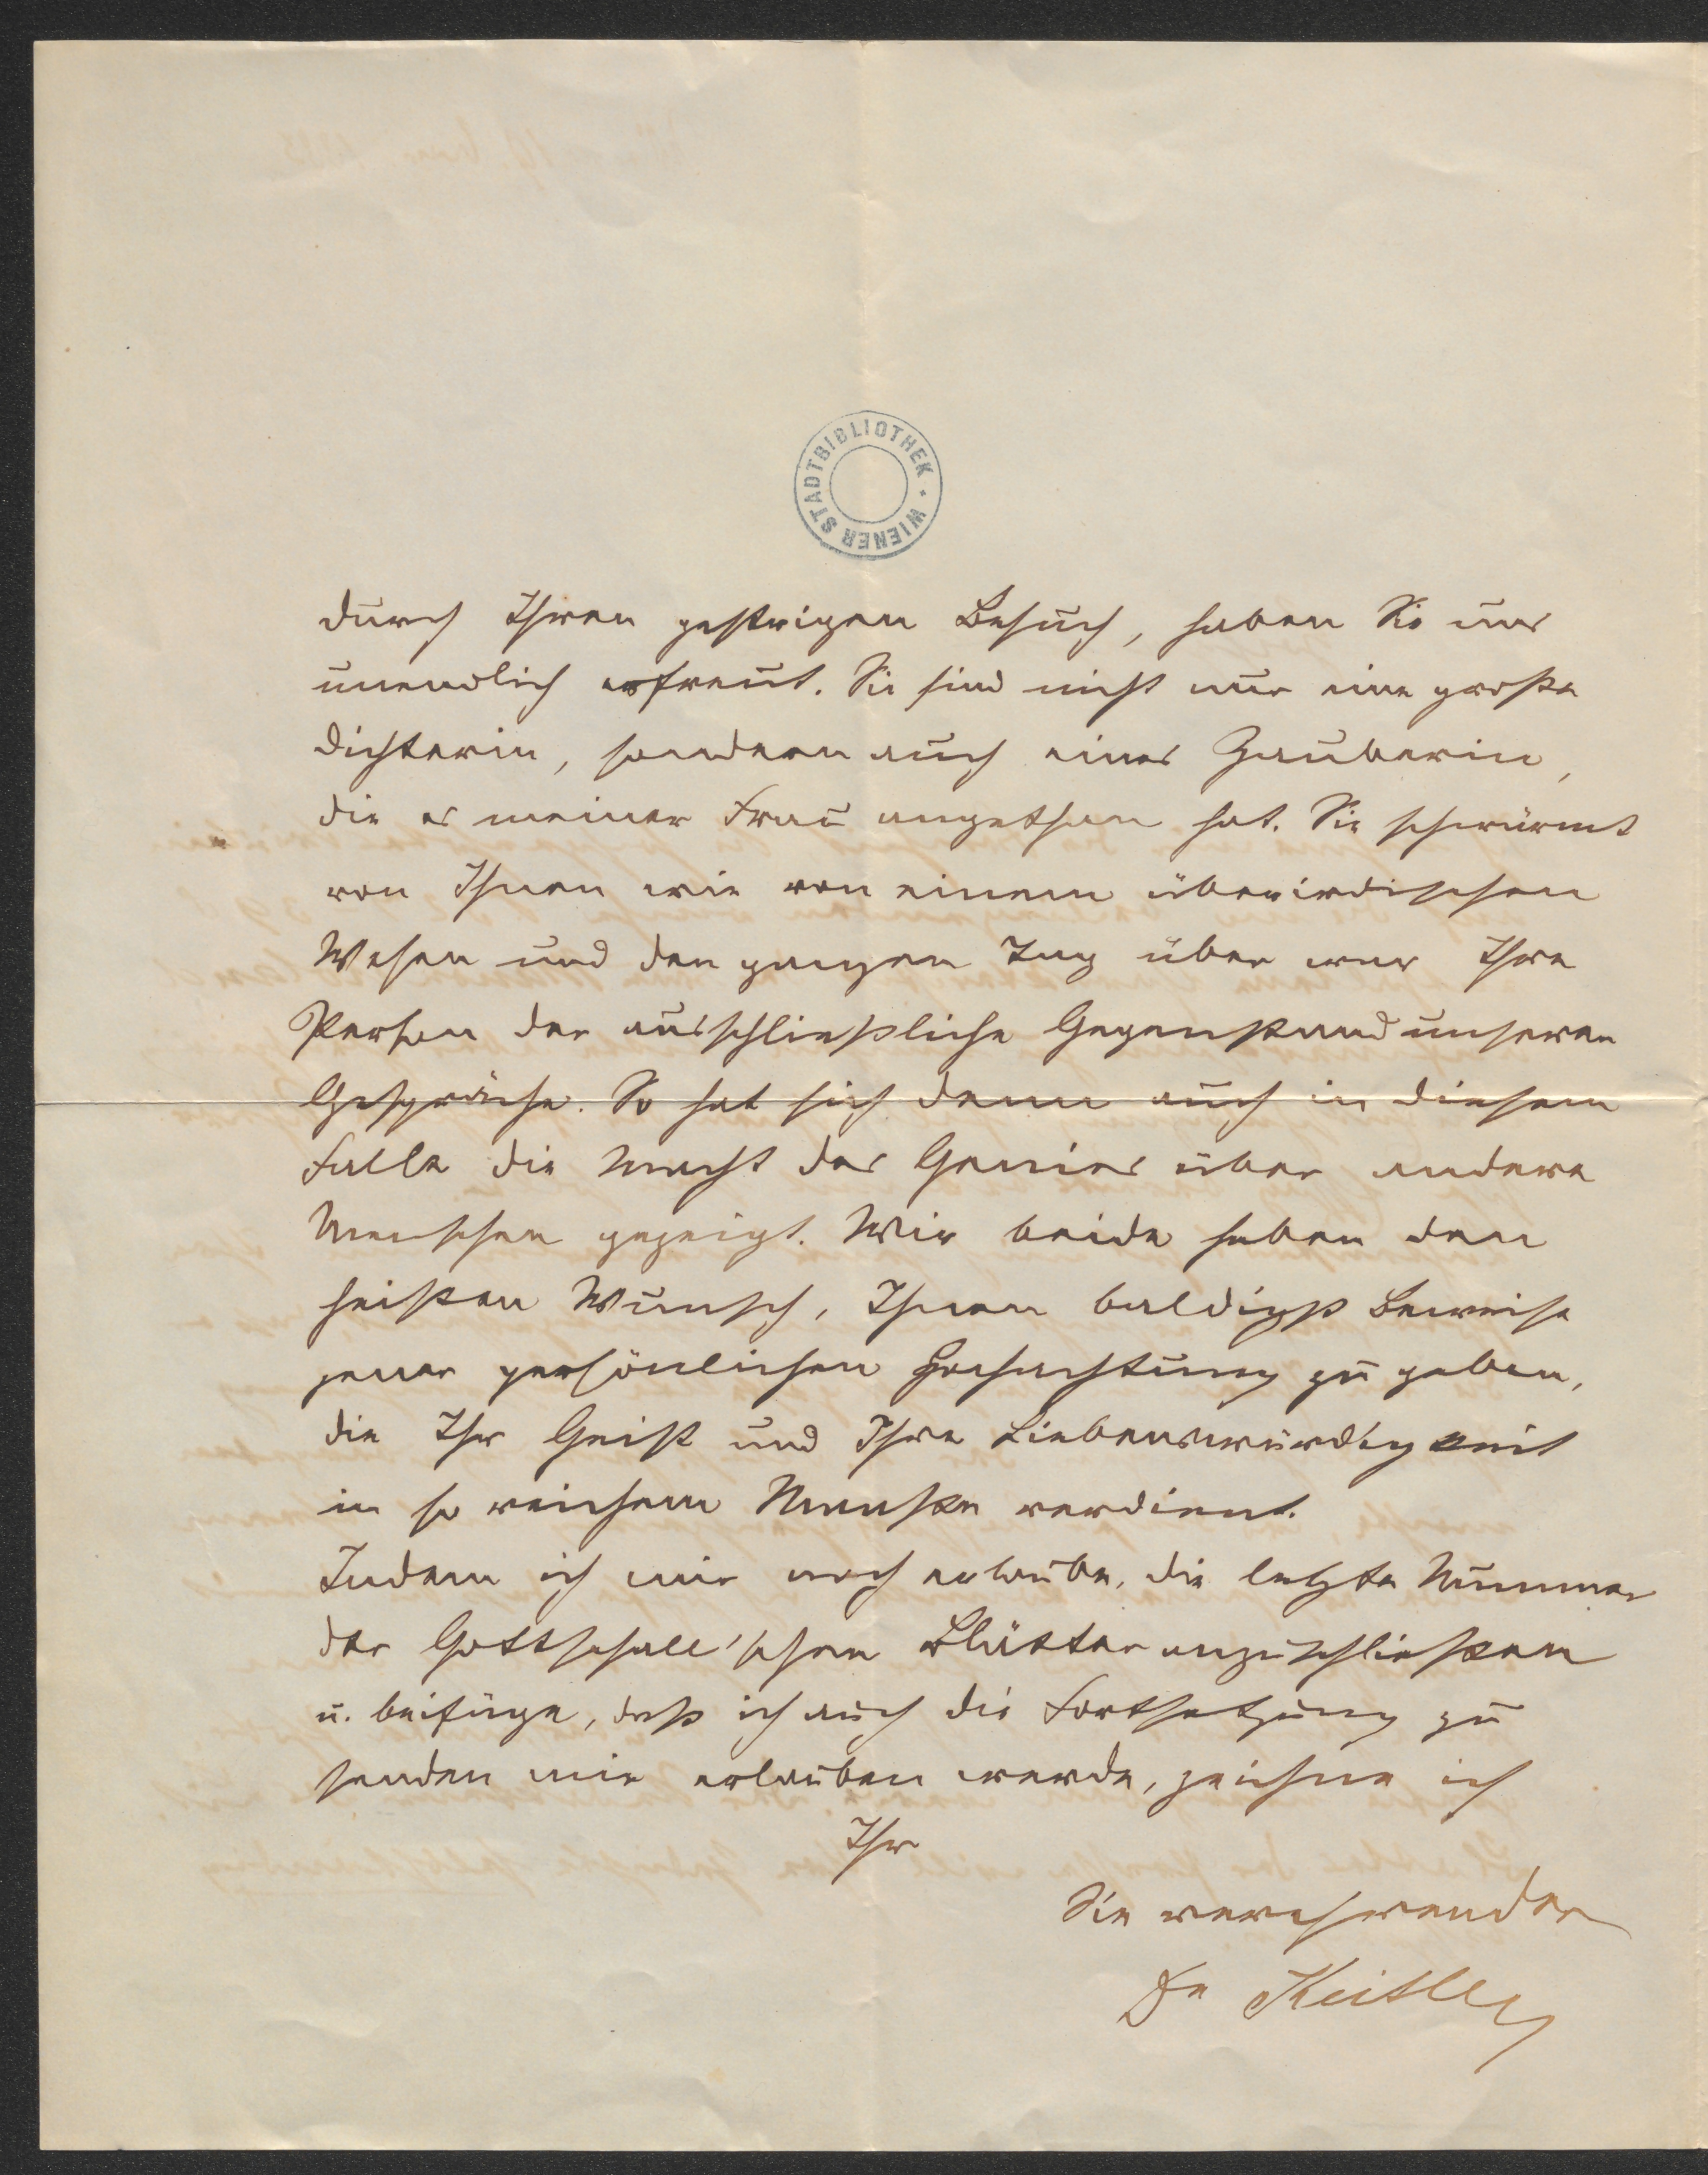 WIENER STADTBIBLIOTHEK
durch Ihren gestrigen Besuch, haben Sie uns
unendlich erfreut. Sie sind nicht nur eine große
Dichterin, sondern auch eine Zauberin,
die es meiner Frau angethan hat. Sie schwärmt
von Ihnen wie von einem überirdischen
Wesen und den ganzen Tag über war Ihre
Person der ausschließliche Gegenstand unserer
Gespräche. So hat sich denn auch in diesem
Falle die Macht des Genies über andere
Menschen gezeigt. Wir beide haben den
heißen Wunsch, Ihnen baldigst Beweise
jener persönlichen Hochachtung zu geben,
die Ihr Geist und Ihre Liebenswürdigkeit
in so reichem Maaße verdient.
Indem ich mir noch erlaube, die letzte Nummer
der Gottschall'schen Blätter anzuschließen
u. beifüge, daß ich auch die Fortsetzung zu
senden mir erlauben werde, zeichne ich
Ihr
Sie verehrender
Dr